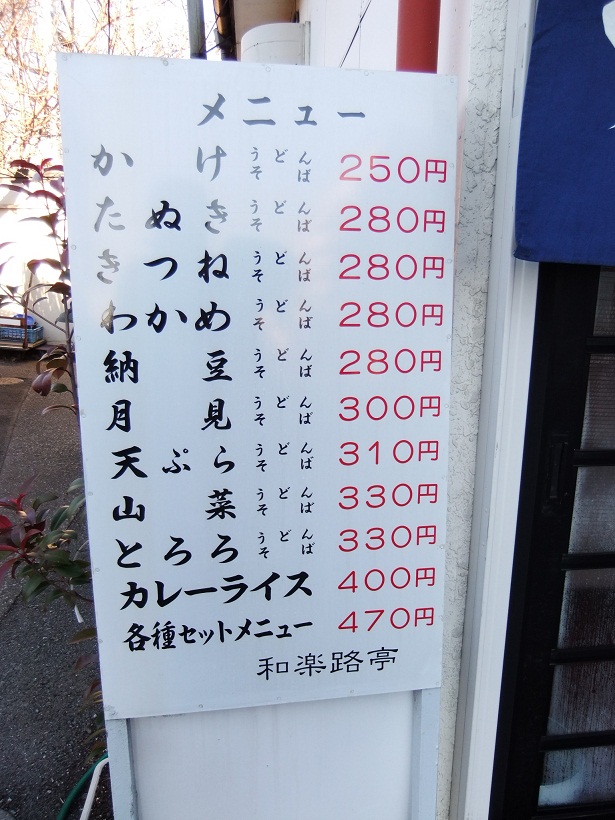 メニュー
かけ うどん そば 250円
たぬき うどん そば 280円
きつね うどん そば 280円
わかめ うどん そば 280円
納豆 うどん そば 280円
月見 うどん そば 300円
天ぷら うどん そば 310円
山菜 うどん そば 330円
とろろ うどん そば 330円
カレーライス 400円
各種セットメニュー 470円
和楽路亭